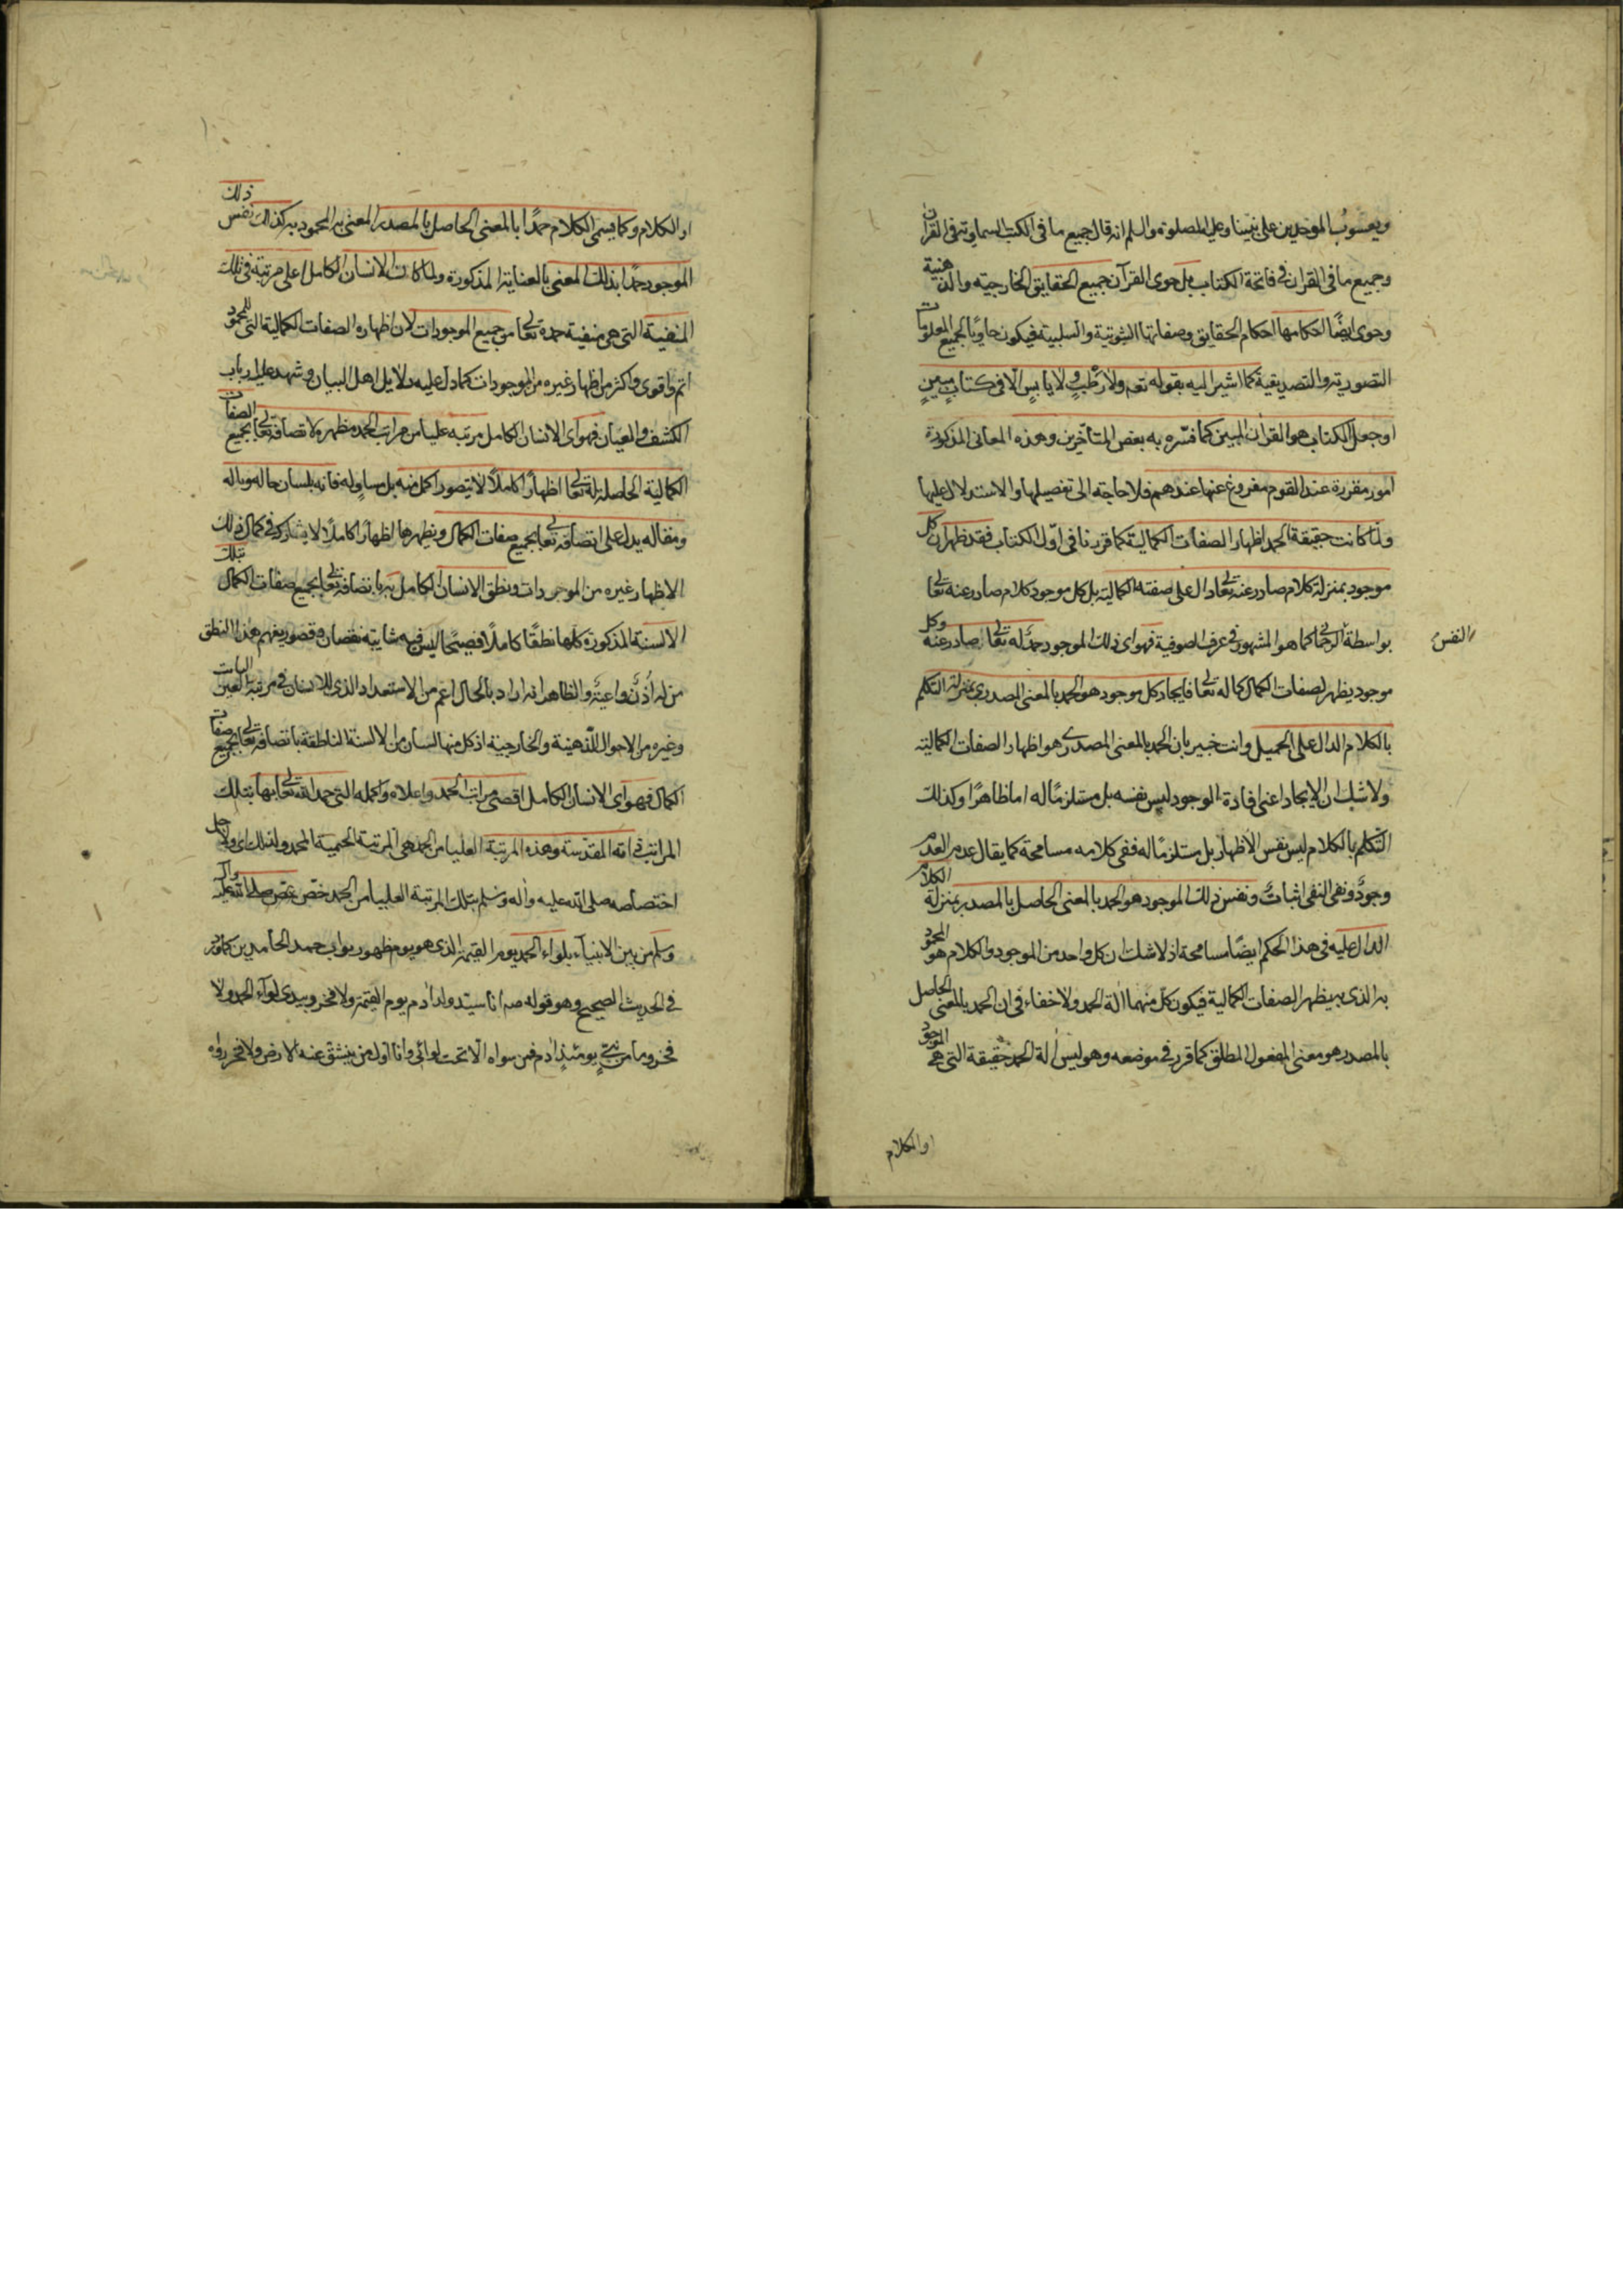 ويعسوب الموحدين على نبينا وعليه الصلوة والسلم انه قال جميع ما في الكتب السماوية في القرآن
وجميع ما في القران في فاتحة الكتاب بل حوى القرآن جميع الحقايق الخارجيه والذهنية
وحوى ايضًا احكامها احكام الحقايق وصفاتها الثبوتية والسلبية فيكون حاويًا لجميع المعلومات
التصورية والتصديقية كما اشير اليه بقوله تعم ولا رطبٍ ولا يابسٍ الا في كتاب مبينٍ
اوجعل الكتاب هو القران المبين كما فسّره به بعض المتأخرين وهذه المعاني المذكورة
امور مقررة عند القوم مفروغ عنها عندهم فلا حاجة الى تفصيلها والاستدلال عليها
ولما كانت حقيقة الحمد اظهار الصفات الكمالية كما قررنا في اول الكتاب فقد ظهر ان كل
موجود بمنزلة كلام صادر عنه تعالى دال على صفته الكمالية بل كل موجود كلام صادر عنه تعالى
بواسطة النفس الرحماني كما هو المشهور في عرف الصوفية فهو اى ذلك الموجود حمدٌ له تعالى صادر عنه وكل
موجود يظهر لصفات الكمال كماله تعالى فايجاد كل موجود هو الحمد بالمعنى المصدرى بمنزلة التكلم
بالكلام الدال على الجميل وانت خبير بان الحمد بالمعنى المصدرى هو اظهار الصفات الكمالية
ولا شك ان الايجاد اعنى افادة الوجود ليس نفسه بل مستلزمًا له اما ظاهرًا وكذلك
التكلم بالكلام ليس نفس الاظهار بل مستلزمًا له ففى كلامه مسامحة كما يقال عدم العدم
وجودٌ ونفى النفى اثباتٌ ونفس ذلك الموجود هو الحمد بالمعنى الحاصل بالمصدر بمنزلة الكلام
الدال عليه في هذا الحكم ايضًا مسامحة اذ لا شك ان كل واحد من الموجود والكلام هو المحمود
به الذى به يظهر الصفات الكمالية فيكون كل منهما الة الحمد ولا خفاء في ان الحمد بالمعنى الحاصل
بالمصدر هو معنى المفعول المطلق كما قرر في موضعه وهو ليس آلة الحمد حقيقة التى هى الموجود
او الكلام
او الكلام وكما يسمى الكلام حمدًا بالمعنى الحاصل بالمصدر المعنى به المحمود به كذلك نفس ذلك
الموجود حمدًا بذلك المعنى بالعناية المذكورة ولما كان الانسان الكامل اعلى مرتبة في تلك
التى هى حمده تعالى من جميع الموجودات لان اظهاره الصفات الكمالية التى للمحمود
اتم واقوى واكثر من اظهار غيره من الموجودات كما دل عليه دلايل اهل البيان وشهد عليه ارباب
الكشف والعيان فهو اى الانسان الكامل مرتبة عليا من مراتب الحمد مظهر لاتصافه تعالى بجميع الصفات
الكمالية الحاصلة له تعالى اظهارًا كاملًا لا يتصور اكمل منه بل مساوٍ له فانه بلسان حاله وباله
ومقاله يدل على اتصافه تعالى بجميع صفات الكمال ويظهرها اظهارًا كاملًا لا يشاركه في كمال ذلك
الاظهار غيره من الموجودات ونطق الانسان الكامل به باتصافه تعالى بجميع صفات الكمال بتلك
الالسنة المذكورة كلها نطقًا كاملًا فصيحًا ليس فيه شايبة نقصان وقصور يفهم هذا النطق
من له أذنٌ واعيةٌ والظاهر انه اراد بالحال اعم من الاستعداد الذى للانسان في مرتبة العين الثابت
وغيره من الاحوال الذهنية والخارجية اذ كل منها لسان من الالسنة الناطقة باتصافه تعالى بجميع صفات
الكمال فهو اى الانسان الكامل اقصى مراتب الحمد واعلاه واكمله التى حمد الله تعالى بها بتلك
المراتب ذاته المقدسة وهذه المرتبة العليا من الحمد هى المرتبة الختمية المحمدية ولذلك اى ولاجل
اختصاصه صلى الله عليه وآله وسلم بتلك المرتبة العليا من الحمد خص صلى الله عليه وآله
وسلم من بين الانبياء بلواء الحمد يوم القيمة الذى هو يوم ظهور ثواب حمد الحامدين كما ورد
في الحديث الصحيح وهو قوله صم انا سيد ولد آدم يوم القيمة ولا فخر وبيدى لواء الحمد ولا
فخر وما من نبىّ يومئذٍ آدم فمن سواه الا تحت لوائى وانا اول من ينشق عنه الارض ولا فخر رواه